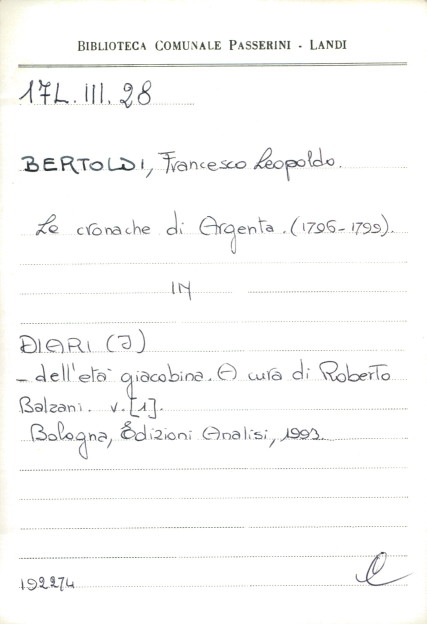 BIBLIOTECA COMUNALE PASSERINI - LANDI
17L. III. 28
BERTOLDI, Francesco Leopoldo.
Le cronache di Argenta. (1796-1799).
IN
DIARI (I)
- dell'età giacobina. A cura di Roberto
Balzani. v. [1].
Bologna, Edizioni Analisi, 1993.
192274